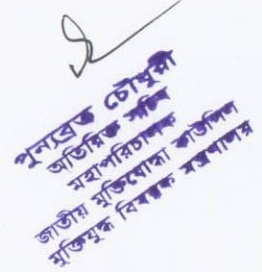 পুনব্রেত চৌধুরী
অতিরিক্ত সচিব
মহাপরিচালক
জাতীয় মুক্তিযোদ্ধা কাউন্সিল
মুক্তিযুদ্ধ বিষয়ক মন্ত্রণালয়